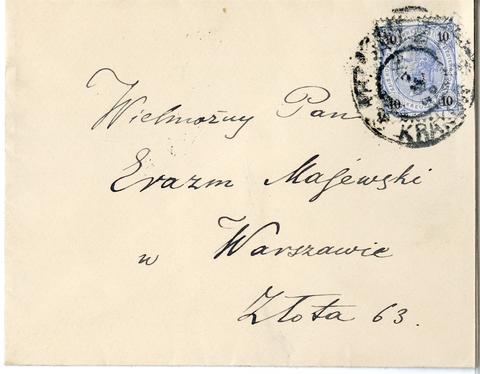 10 10
10 10
KRA
Wielmożny Pan
Erazm Majewski
w Warszawie
Złota 63.